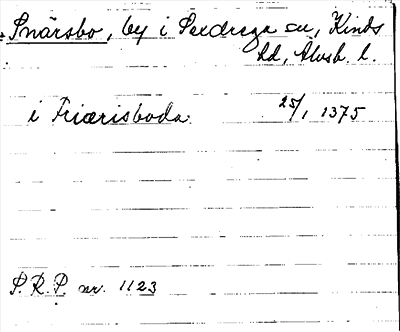 Snärsbo, by i Sexdrega sn, Kinds
hd, Älvsb. l.
i Friærisboda 25/1 1375
S. R. P. nr. 1123